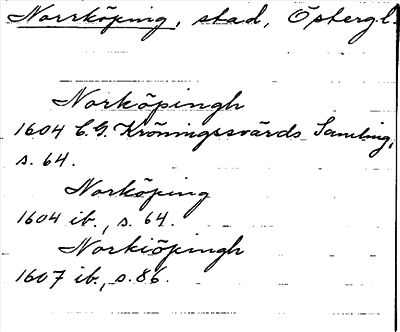 Norrköping, stad, Östergl.
Norköpingh
1604 C. G. Kröningssvärds Samling,
s. 64.
Norköping
1604 ib., s. 64.
Norkiöpingh
1607 ib., s. 86.